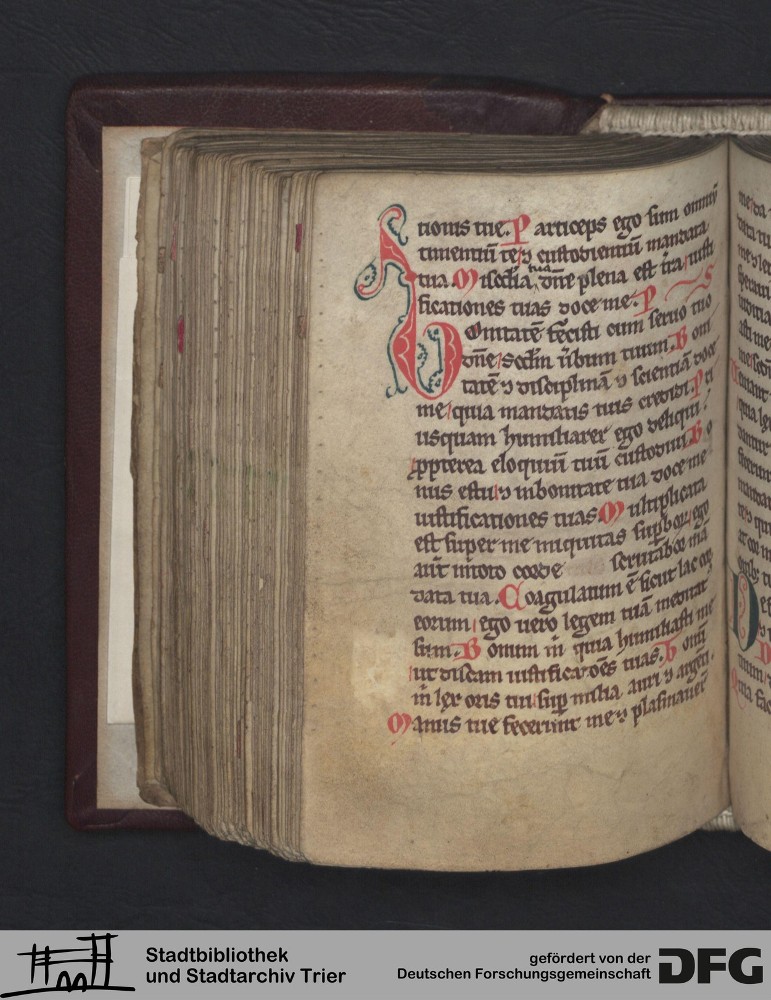 tionis tue. Particeps ego sum omniũ
timentiũ te ⁊ custodientiũ mandata
tua Misĩcdia tua dñe plena est t̃ra iusti
ficationes tuas doce me. P S
Bonitatẽ fecisti cum seruo tuo
dñe scdm ũbum tuum. Boni
tatẽ ⁊ disciplinã ⁊ scientiã doce
me quia mandatis tuis credidi. Pri
usquam humiliarer ego deliqui
ꝓpterea eloquiũ tuũ custodiui. Bo
nus es tu ⁊ in bonitate tua doce me
iustificationes tuas Multiplicata
est super me iniquitas sup̃bor ego
aut̃ in toto corde scrutabor mã
data tua. Coagulatum ẽ sicut lac cor
eorum ego uero legem tuã meditat
sum. Bonum m̃ quia humiliasti me
ut discam iustificatões tuas. bonũ
m̃ lex oris tui sup̃ milia auri ⁊ argẽti.
Manus tue fecerunt me ⁊ plasmauer̃
Stadtbibliothek
und Stadtarchiv Trier
gefördert von der
Deutschen Forschungsgemeinschaft
DFG